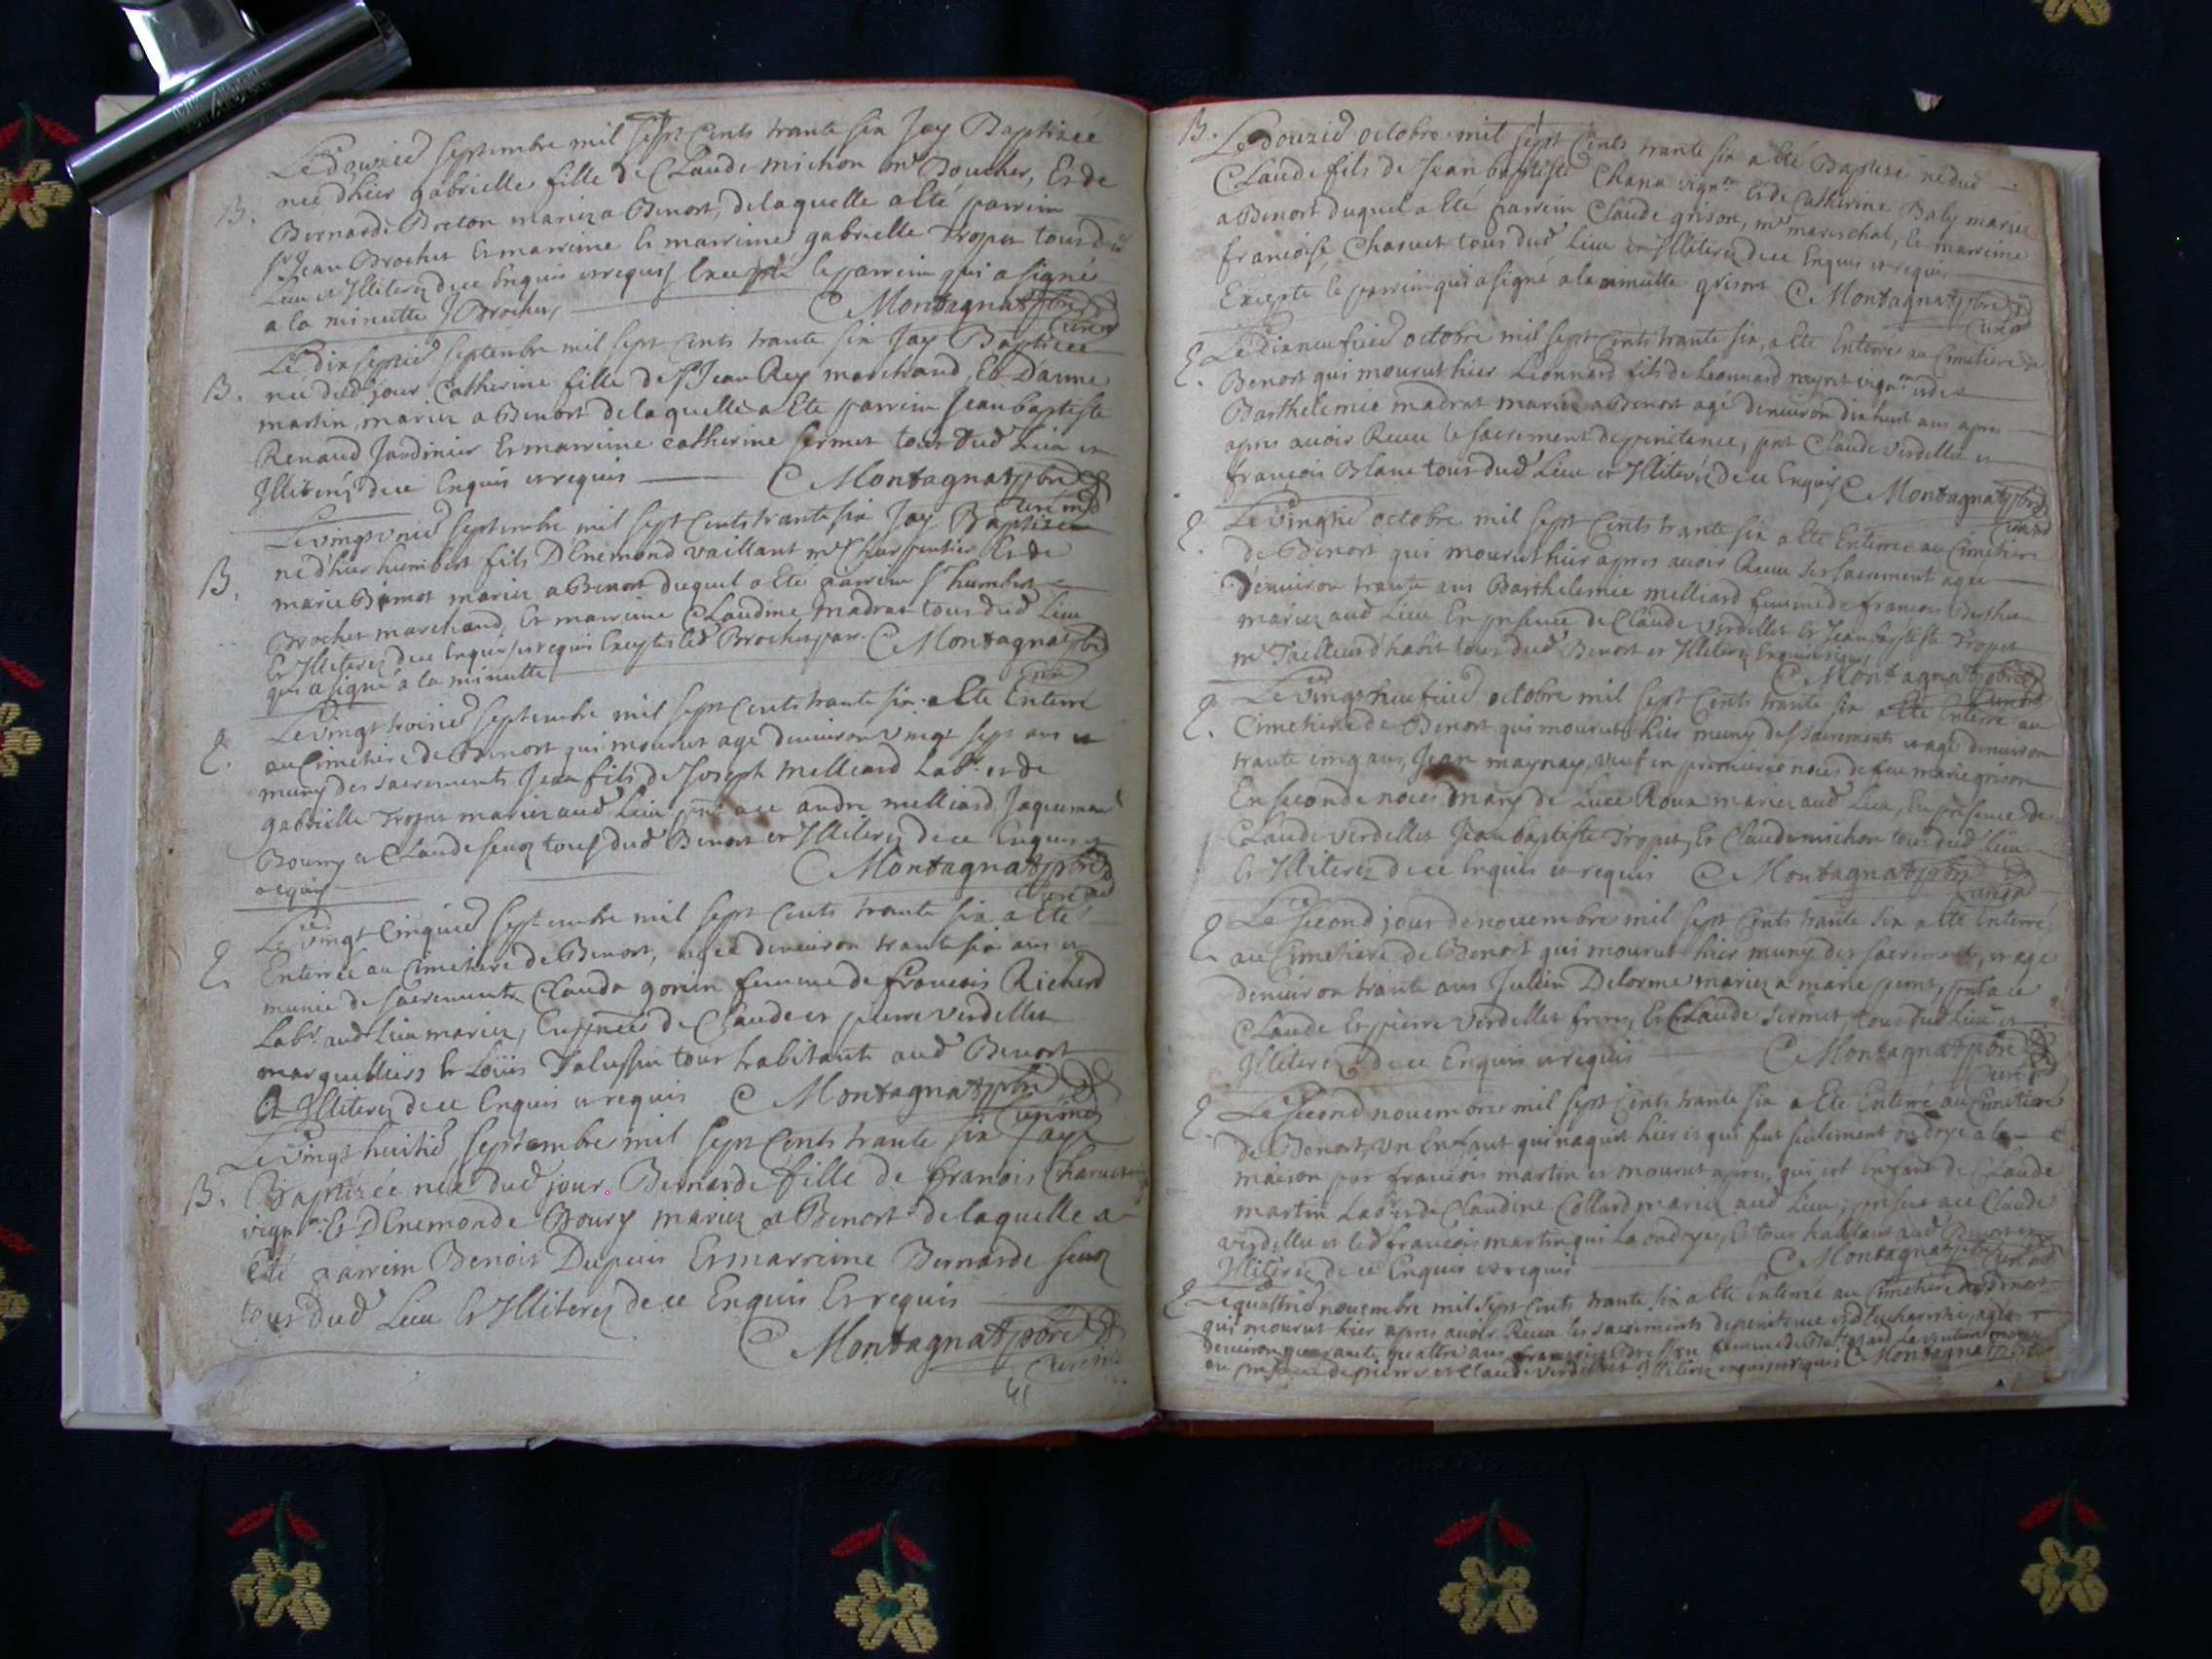 Le septembre mil sept Cents trante six Jay Baptizée
née dhier gabrielle fille de Claude michon mr Boucher, Et de
B. Bernarde Breton mariez a Benost, delaquelle a Eté parrein
sr Jean Brochet Et marreine gabrielle Tropet tous dud
Lieu et Illiterez de ce Enquis et requis Excepté le parrein qui a signé
a la minutte J Brochet
C Montagnat pbre
Curé
Le dix septie septembre mil sept Cents trante six Jay Baptizée
B. née dud jour Catherine fille de sr Jean Rey marchand Et D'anne
martin, mariez a Benost delaquelle a Eté parrein Jean baptiste
Renaud Jardinier Et marreine Catherine sermet tous dud Lieu et
Illiterez de ce Enquis et requis C Montagnat pbre
Curé
Le vingt unie septembre mil sept Cents trante six Jay Baptizé
né dhier humbert fils D'Enemond vaillant mr Charpentier Et de
B. marie mariez a Benost duquel a Eté parrein sr humbert
Brochet marchand, Et marreine Claudine madras tous dud Lieu
Et Illiterez de ce Enquis et requis Excepté led Brochet par. C Montagnat pbre
qui a signé a la minutte
Curé
Le vingt troisie septembre mil sept Cents trante six a Eté Enterré
E. au Cimetiere de Benost qui mourut agé denuiron vingt sept ans et
muny des sacrements Jean fils de Joseph milliard Labr. et de
gabrielle Tropet mariez aud Lieu andre milliard Jaquema
Boury et Claude tous dud Benost et Illiterez de ce Enquis et
requis
C Montagnat pbre
Curé
Le vingt Cinquie septembre mil sept Cents trante six a Eté
E. Enterrée au Cimetiere de Benost, agée denuiron trante six ans et
munie de sacrements Clauda gonin femme de francois Richerd
Labr. aud Lieu mariez, de Claude et pierre verdellet
marguilliers Et Loüis tous habitants aud Benost
Et Illiterez de ce Enquis et requis C Montagnat pbre
Curé
Le vingt huitie septembre mil sept Cents trante six Jay
B. Baptizée née dud jour Bernarde fille de francois Charuet
vign. Et D'Enemonde Boury mariez a Benost delaquelle a
Eté parrein Benoit Dupuis Et marreine Bernarde
tous dud Lieu Et Illiterez de ce Enquis Et requis
C Montagnat pbre
Curé
B. Le douzie octobre mil sept Cents trante six a Eté Baptizé né dud
Claude fils de Jean baptiste Chana vign. Et de Catherine Baly mariez
a Benost duquel a Eté parrein Claude grison, mr mareschal, Et marreine
francoise Charuet tous dud Lieu et Illiterez de ce Enquis et requis
Excepté le parrein qui a signé a la minutte grison C Montagnat pbre
Curé
E. Le dixneufuie octobre mil sept Cents trante six, a Eté Enterré au Cimetiere de
Benost qui mourut hier Leonnard fils de Leonnard vign. et de
Barthelemie madras mariez a Benost agé denuiron dix huit ans apres
apres auoir Receu le sacrement de penitence, Claude Verdellet et
francois Blanc tous dud Lieu et Illiterez de ce Enquis C Montagnat pbre
Curé
E. Le vingtie octobre mil sept Cents trante six a Eté Enterrée au Cimetiere
de Benost qui mourut hier apres auoir Receu les sacrements agée
denuiron trante ans Barthelemie milliard femme de francois
mariez aud Lieu En presence de Claude verdellet Et Jean baptiste Tropet
mr Tailleur d'habit tous dud Benost et Illiterez Enquis requis
C Montagnat pbre
Curé
E. Le vingt neufuie octobre mil sept Cents trante six a Eté Enterré au
Cimetiere de Benost qui mourut hier muny des sacrements et agé denuiron
trante cinq ans, Jean maynay, veuf en premieres noces de feu marie grison
En seconde noces mary de Luce Roux mariez aud Lieu, En presence de
Claude verdellet Jean baptiste Tropet, Et Claude michon tous dud Lieu
Et Illiterez de ce Enquis et requis C Montagnat pbre
Curé
E. Le second jour de nouembre mil sept Cents trante six a Eté Enterré,
au Cimetiere de Benost qui mourut hier muny des sacrements, et agé
denuiron trante ans Julien Delorme mariez a marie
Claude Et pierre Verdellet freres, Et Claude sermet, tous dud Lieu et
Illiterez de ce Enquis et requis C Montagnat pbre
Curé
E. Le second nouembre mil sept Cents trante six a Eté Enterré au Cimetiere
de Benost, un Enfant qui naquit hier et qui fut seulement ondoyé a la
maison par francois martin et mourut apres, qui est Enfant de Claude
martin Labr. et de Claudine Collard mariez aud Lieu, Claude
verdellet et led francois martin qui La ondoyé, Et tous habitans aud Benost et
Illiterez de ce Enquis et requis C Montagnat pbre
Curé
E. Le quattrie nouembre mil sept Cents trante six a Eté Enterrée au Cimetiere de Benost
qui mourut hier apres auoir Receu les sacrements de penitence et d'Eucharistie, agée
denuiron quarante quattre ans francoise femme de
en presence de pierre et Claude verdellet Illiterez enquis et requis C Montagnat pbre